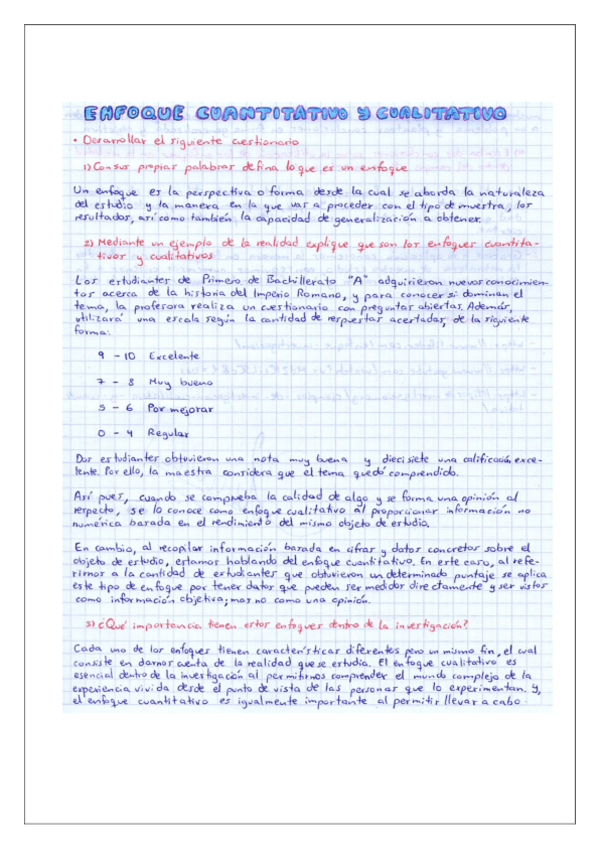 ENFOQUE CUANTITATIVO Y CUALITATIVO
• Desarrollar el siguiente cuestionario
1) Con sus propias palabras defina lo que es un enfoque
Un enfoque es la perspectiva o forma desde la cual se aborda la naturaleza
del estudio y la manera en la que vas a proceder con el tipo de muestra, los
resultados, así como también la capacidad de generalización a obtener.
2) Mediante un ejemplo de la realidad explique que son los enfoques cuantita-
tivos y cualitativos
Los estudiantes de Primero de Bachillerato "A" adquirieron nuevos conocimien-
tos acerca de la historia del Imperio Romano, y para conocer si dominan el
tema, la profesora realiza un cuestionario con preguntas abiertas. Además,
utilizará una escala según la cantidad de respuestas acertadas, de la siguiente
forma:
9 - 10 Excelente
7 - 8 Muy bueno
5 - 6 Por mejorar
0 - 4 Regular
Dos estudiantes obtuvieron una nota muy buena y diecisiete una calificación exce-
lente. Por ello, la maestra considera que el tema quedó comprendido.
Así pues, cuando se comprueba la calidad de algo y se forma una opinión al
respecto, se lo conoce como enfoque cualitativo al proporcionar información no
numérica basada en el rendimiento del mismo objeto de estudio.
En cambio, al recopilar información basada en cifras y datos concretos sobre el
objeto de estudio, estamos hablando del enfoque cuantitativo. En este caso, al refe-
rirnos a la cantidad de estudiantes que obtuvieron un determinado puntaje se aplica
este tipo de enfoque por tener datos que pueden ser medidos directamente y ser vistos
como información objetiva; mas no como una opinión.
3) ¿Qué importancia tienen estos enfoques dentro de la investigación?
Cada uno de los enfoques tienen características diferentes pero un mismo fin, el cual
consiste en darnos cuenta de la realidad que se estudia. El enfoque cualitativo es
esencial dentro de la investigación al permitirnos comprender el mundo complejo de la
experiencia vivida desde el punto de vista de las personas que lo experimentan. Y,
el enfoque cuantitativo es igualmente importante al permitir llevar a cabo